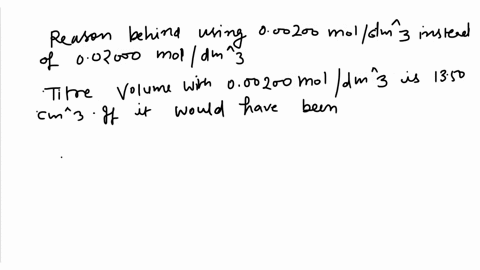 Reason behind using 0.00200 mol/dm^3 instead
of 0.02000 mol/dm^3
Titre Volume with 0.00200 mol/dm^3 is 13.50
cm^3. If it would have been